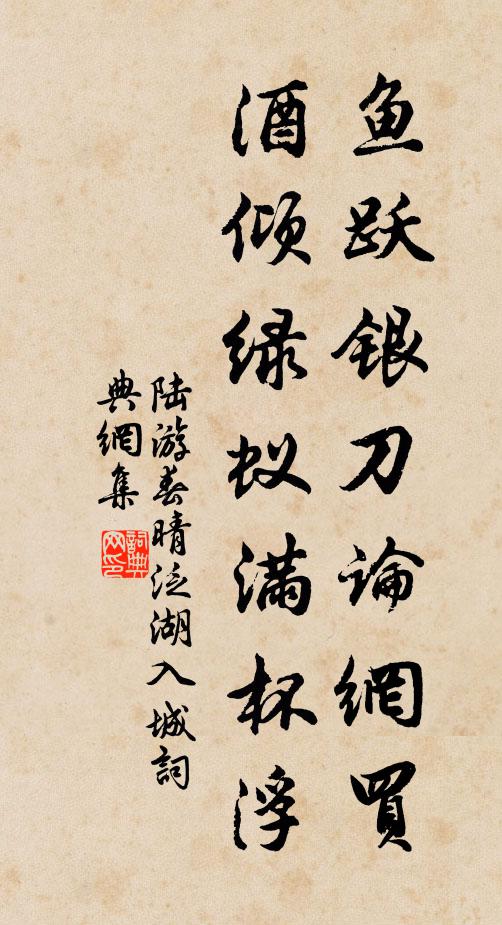 鱼跃银刀论網買
酒倾绿蚁满杯浮
陆游春晴泛湖入城詞
典網集
詞典
网印